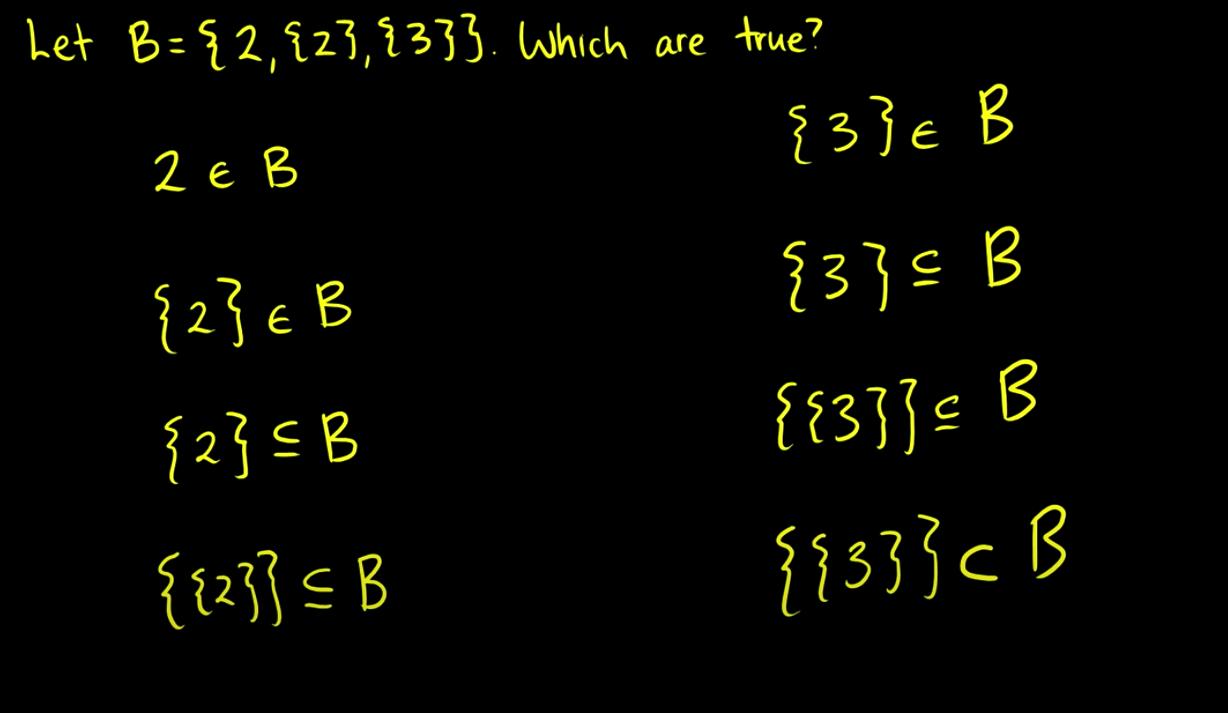 Let B={2,{2},{3}}. Which are true?
2 ∈ B
{2} ∈ B
{2} ⊆ B
{{2}} ⊆ B
{3} ∈ B
{3} ⊆ B
{{3}} ⊆ B
{{3}} ⊂ B